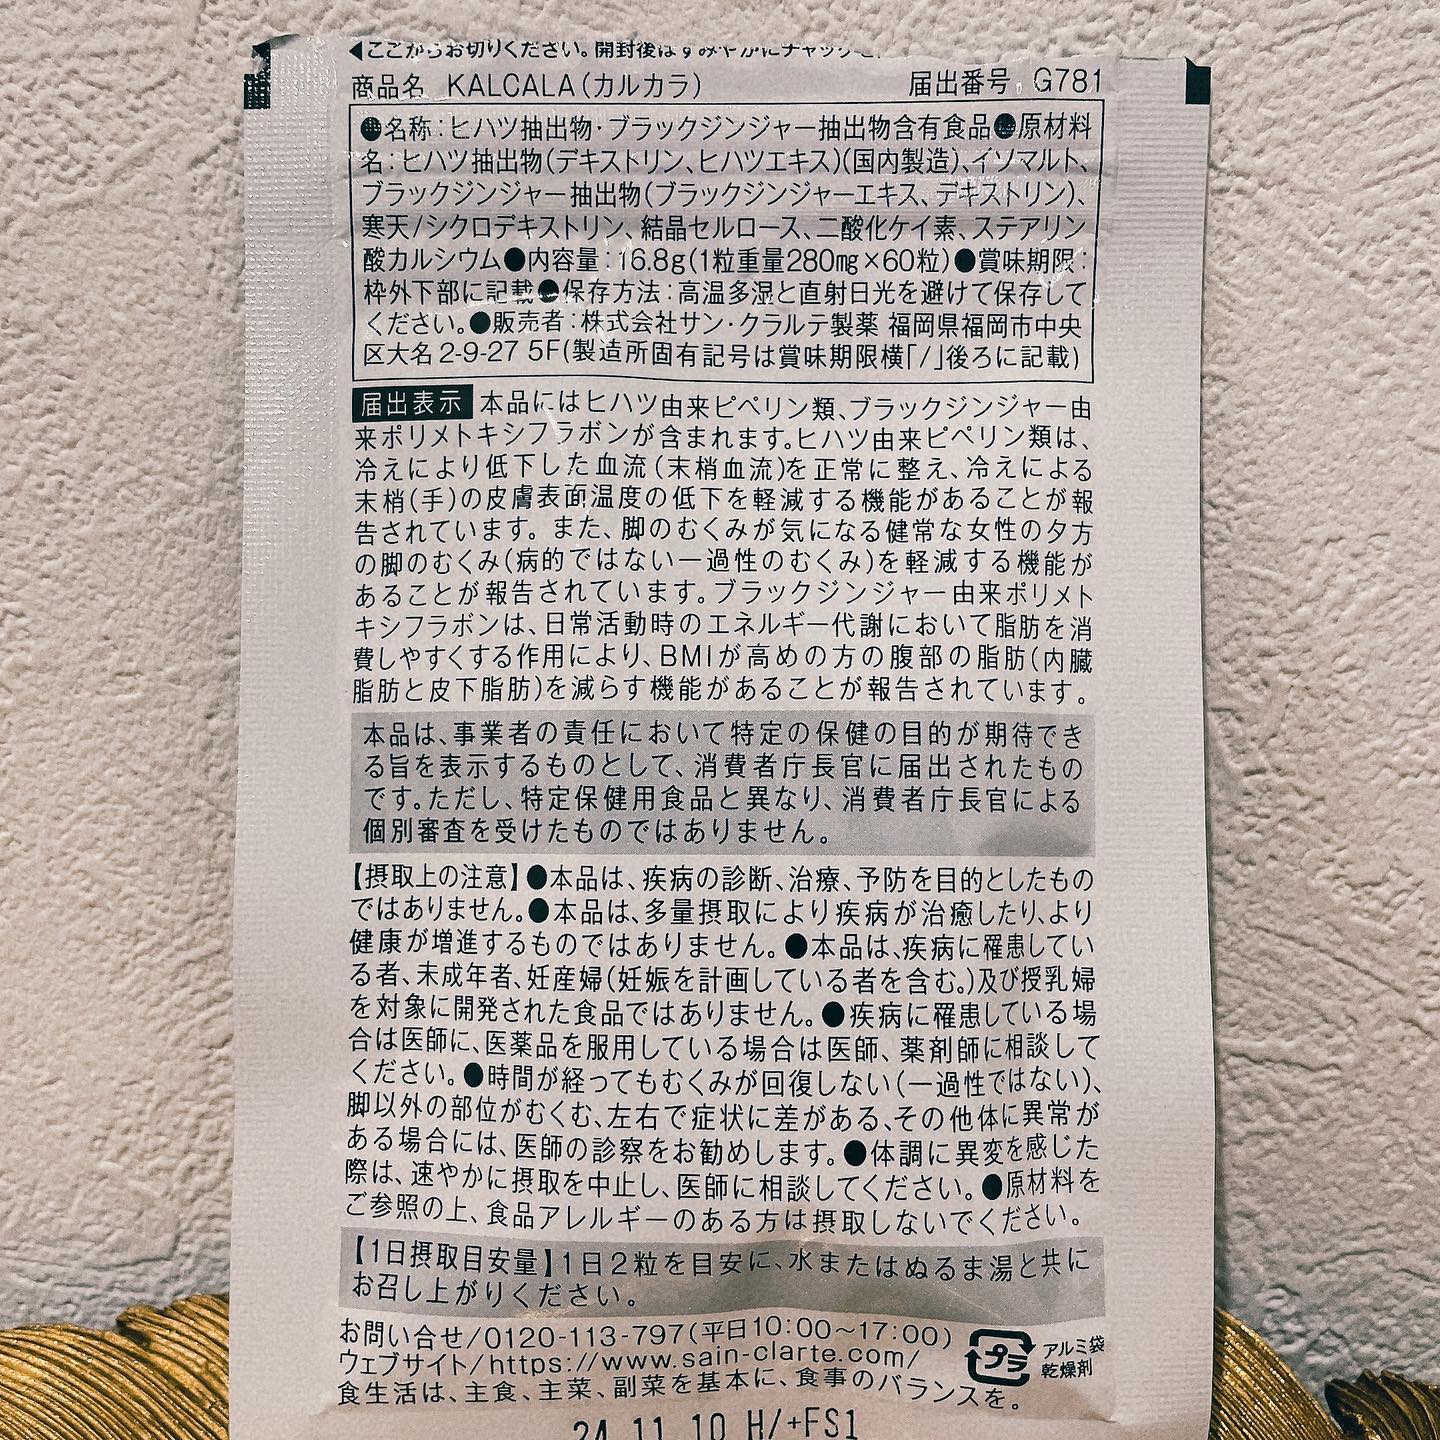 ◀ここからお切りください。開封後はすみやかにチャックを
商品名 KALCALA(カルカラ) 届出番号 G781
●名称:ヒハツ抽出物・ブラックジンジャー抽出物含有食品●原材料
名:ヒハツ抽出物(デキストリン、ヒハツエキス)(国内製造)、イソマルト、
ブラックジンジャー抽出物(ブラックジンジャーエキス、デキストリン)、
寒天/シクロデキストリン、結晶セルロース、二酸化ケイ素、ステアリン
酸カルシウム●内容量:16.8g(1粒重量280mg×60粒)●賞味期限:
枠外下部に記載●保存方法:高温多湿と直射日光を避けて保存して
ください。●販売者:株式会社サン・クラルテ製薬 福岡県福岡市中央
区大名2-9-27 5F(製造所固有記号は賞味期限横「/」後ろに記載)
届出表示 本品にはヒハツ由来ピペリン類、ブラックジンジャー由
来ポリメトキシフラボンが含まれます。ヒハツ由来ピペリン類は、
冷えにより低下した血流(末梢血流)を正常に整え、冷えによる
末梢(手)の皮膚表面温度の低下を軽減する機能があることが報
告されています。また、脚のむくみが気になる健常な女性の夕方
の脚のむくみ(病的ではない一過性のむくみ)を軽減する機能が
あることが報告されています。ブラックジンジャー由来ポリメト
キシフラボンは、日常活動時のエネルギー代謝において脂肪を消
費しやすくする作用により、BMIが高めの方の腹部の脂肪(内臓
脂肪と皮下脂肪)を減らす機能があることが報告されています。
本品は、事業者の責任において特定の保健の目的が期待でき
る旨を表示するものとして、消費者庁長官に届出されたもの
です。ただし、特定保健用食品と異なり、消費者庁長官による
個別審査を受けたものではありません。
【摂取上の注意】●本品は、疾病の診断、治療、予防を目的としたもの
ではありません。●本品は、多量摂取により疾病が治癒したり、より
健康が増進するものではありません。●本品は、疾病に罹患してい
る者、未成年者、妊産婦(妊娠を計画している者を含む。)及び授乳婦
を対象に開発された食品ではありません。●疾病に罹患している場
合は医師に、医薬品を服用している場合は医師、薬剤師に相談して
ください。●時間が経ってもむくみが回復しない(一過性ではない)、
脚以外の部位がむくむ、左右で症状に差がある、その他体に異常が
ある場合には、医師の診察をお勧めします。●体調に異変を感じた
際は、速やかに摂取を中止し、医師に相談してください。●原材料を
ご参照の上、食品アレルギーのある方は摂取しないでください。
【1日摂取目安量】1日2粒を目安に、水またはぬるま湯と共に
お召し上がりください。
お問い合せ/0120-113-797(平日10:00〜17:00)
ウェブサイト/https://www.sain-clarte.com/
食生活は、主食、主菜、副菜を基本に、食事のバランスを。
プラ
アルミ袋
乾燥剤
24.11.10 H/+FS1